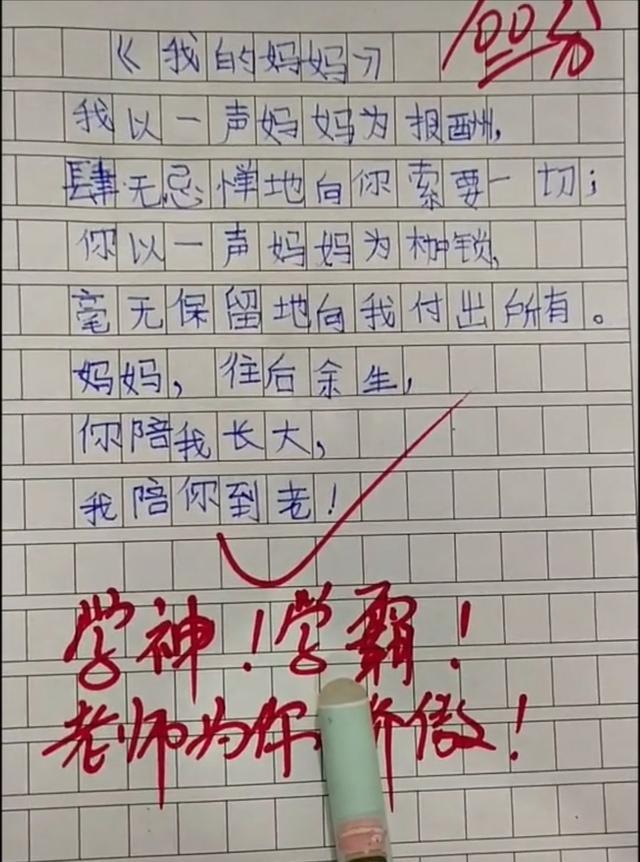 《我的妈妈》
100分
我以一声妈妈为报酬,
肆无忌惮地向你索要一切;
你以一声妈妈为枷锁,
毫无保留地向我付出所有。
妈妈,往后余生,
你陪我长大,
我陪你到老!
学神!学霸!
老师为你傲!